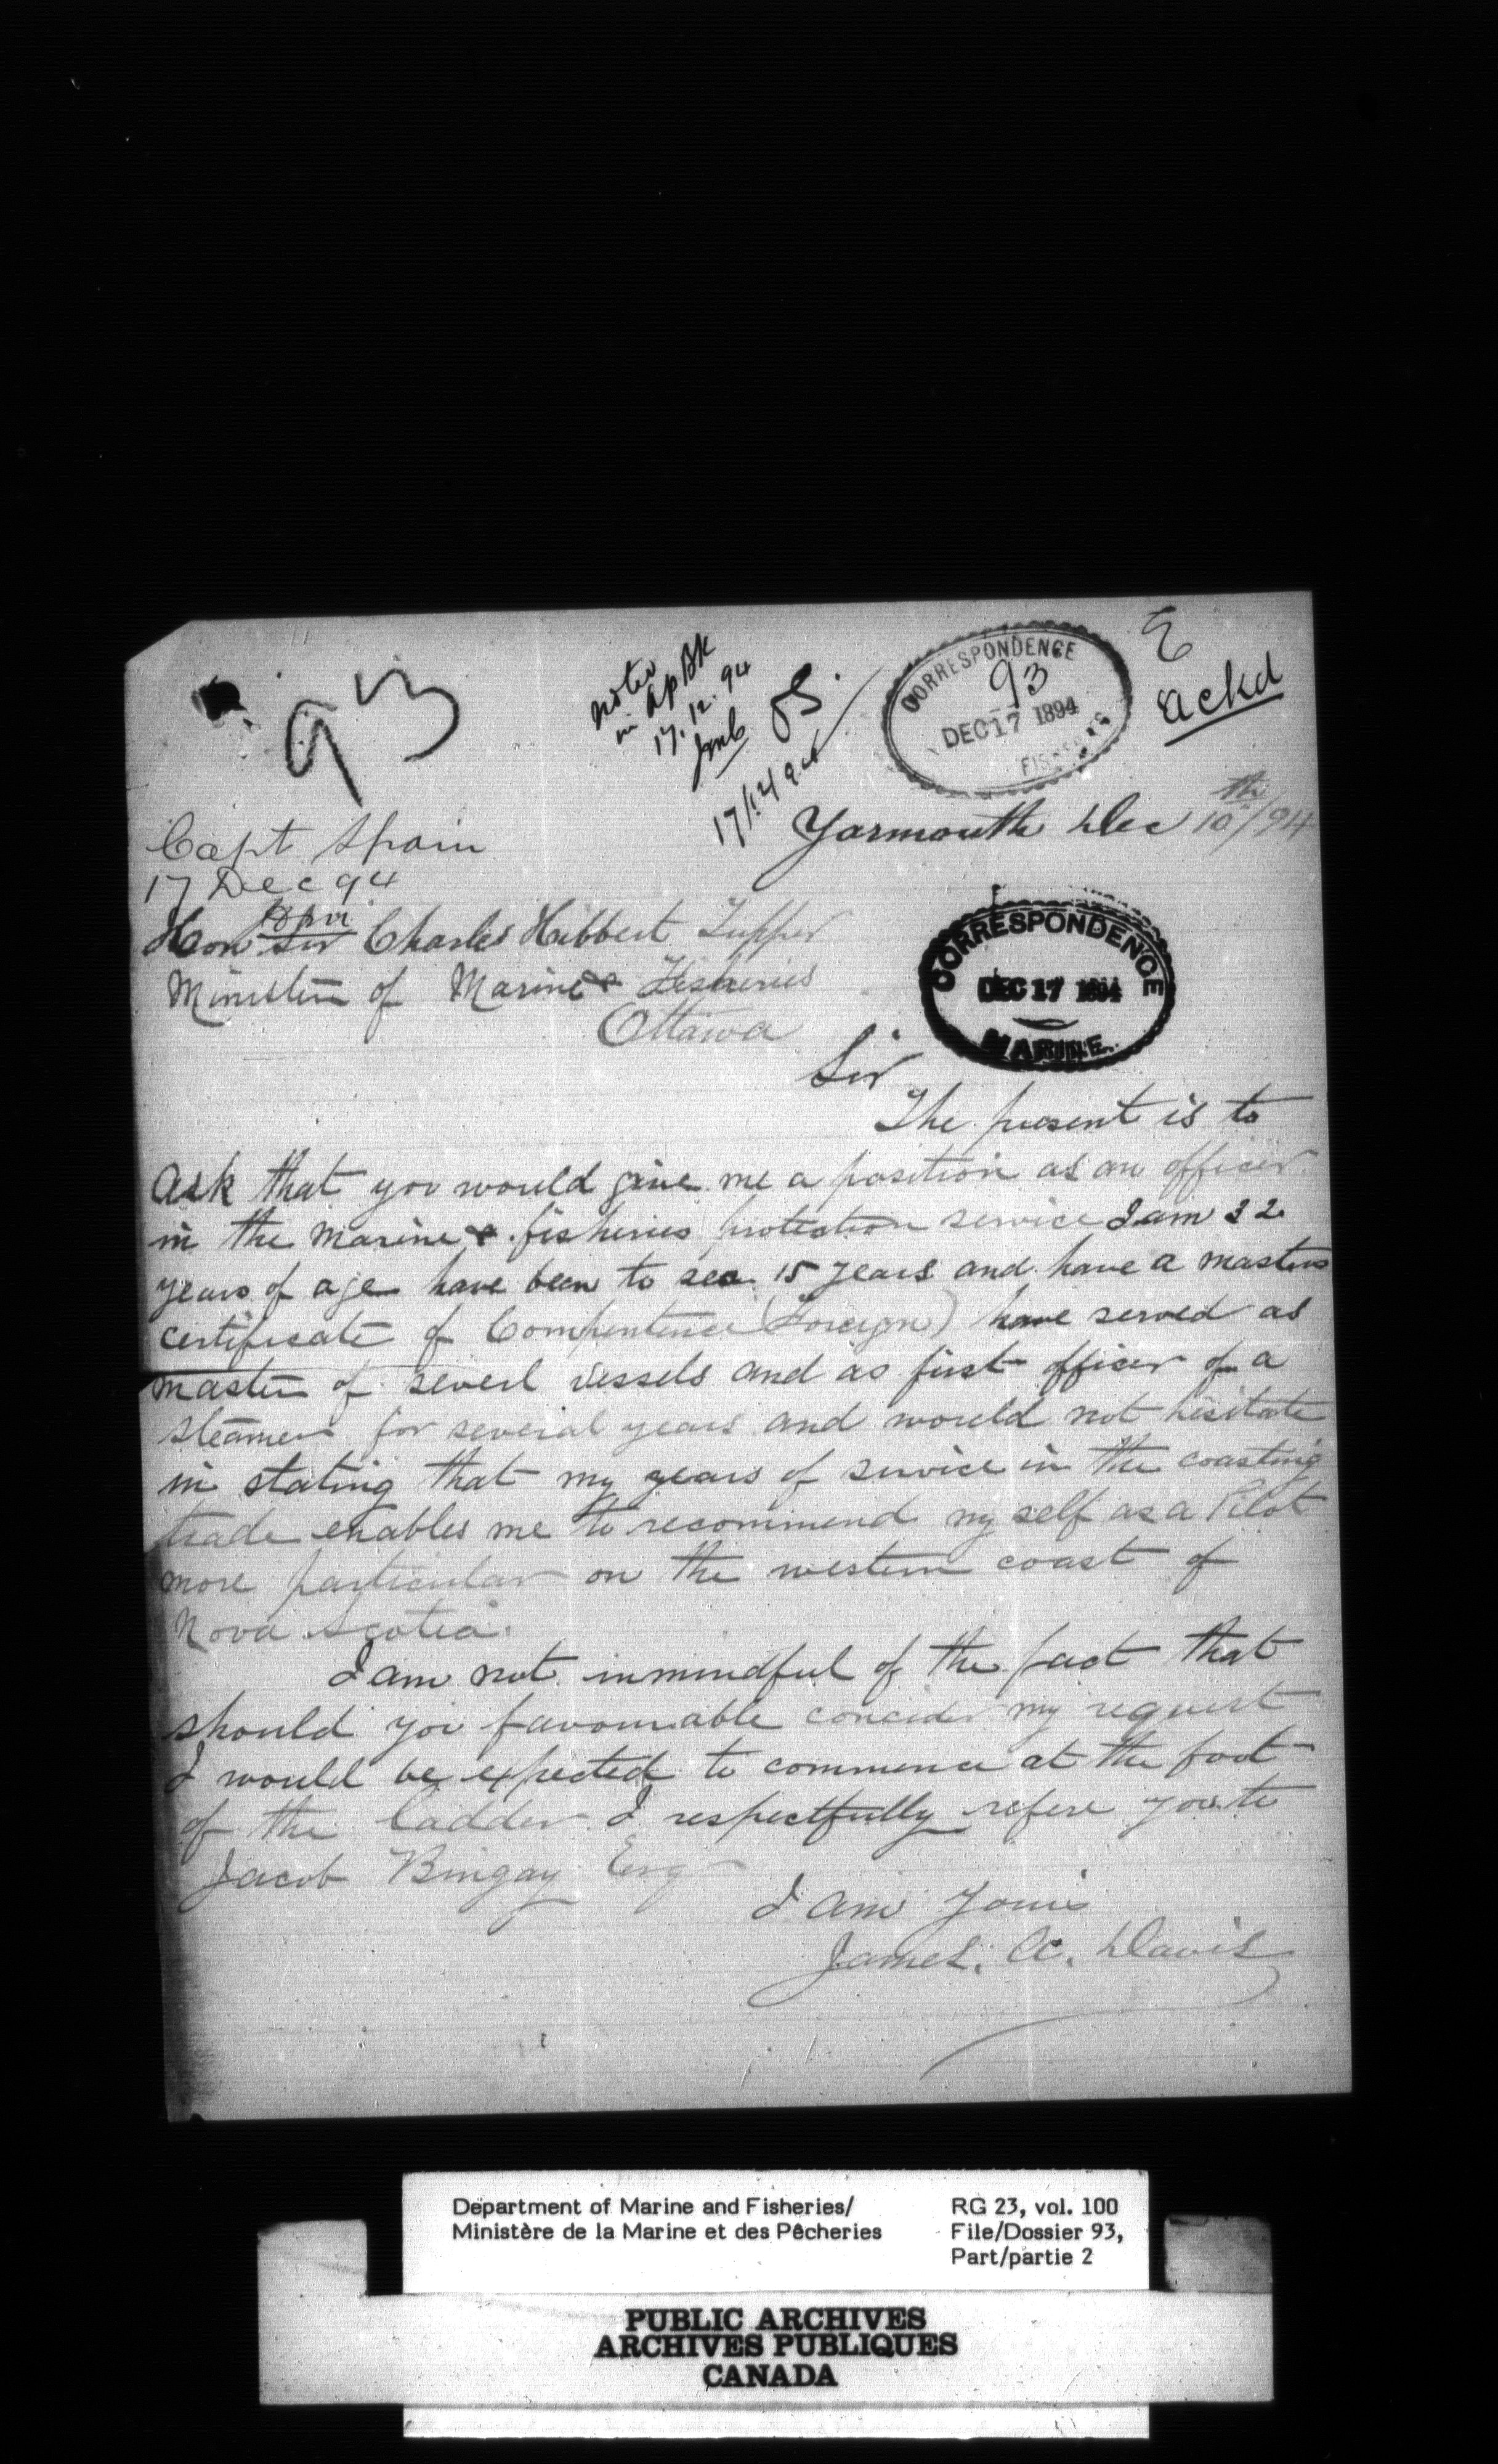 93
Noted
in Ap Bk
17.12.94
17/12/94
CORRESPONDENCE
93
DEC 17 1894
FISHERIES
E
Ackd
Yarmouth Dec 10th/94
Capt Spain
17 Dec 94
Hon Sir Charles Hibbert Tupper
Minister of Marine & Fisheries
Ottawa
CORRESPONDENCE
DEC 17 1894
MARINE.
Sir
The present is to
ask that you would give me a position as an officer
in the Marine & fisheries protection service I am 32
years of age have been to sea 15 years and have a masters
certificate of Compentence (Foreign) have served as
master of severl vessels and as first officer of a
steamer for several years and would not hesitate
in stating that my years of service in the coasting
trade enables me to recommend my self as a Pilot
more particular on the western coast of
Nova Scotia.
I am not inmindful of the fact that
should you favourable concider my request
I would be expected to commence at the foot
of the ladder I respectfully refere you to
Jacob Bingay Esq
I am Yours
James. A. Davis
Department of Marine and Fisheries/
Ministère de la Marine et des Pêcheries
RG 23, vol. 100
File/Dossier 93,
Part/partie 2
PUBLIC ARCHIVES
ARCHIVES PUBLIQUES
CANADA